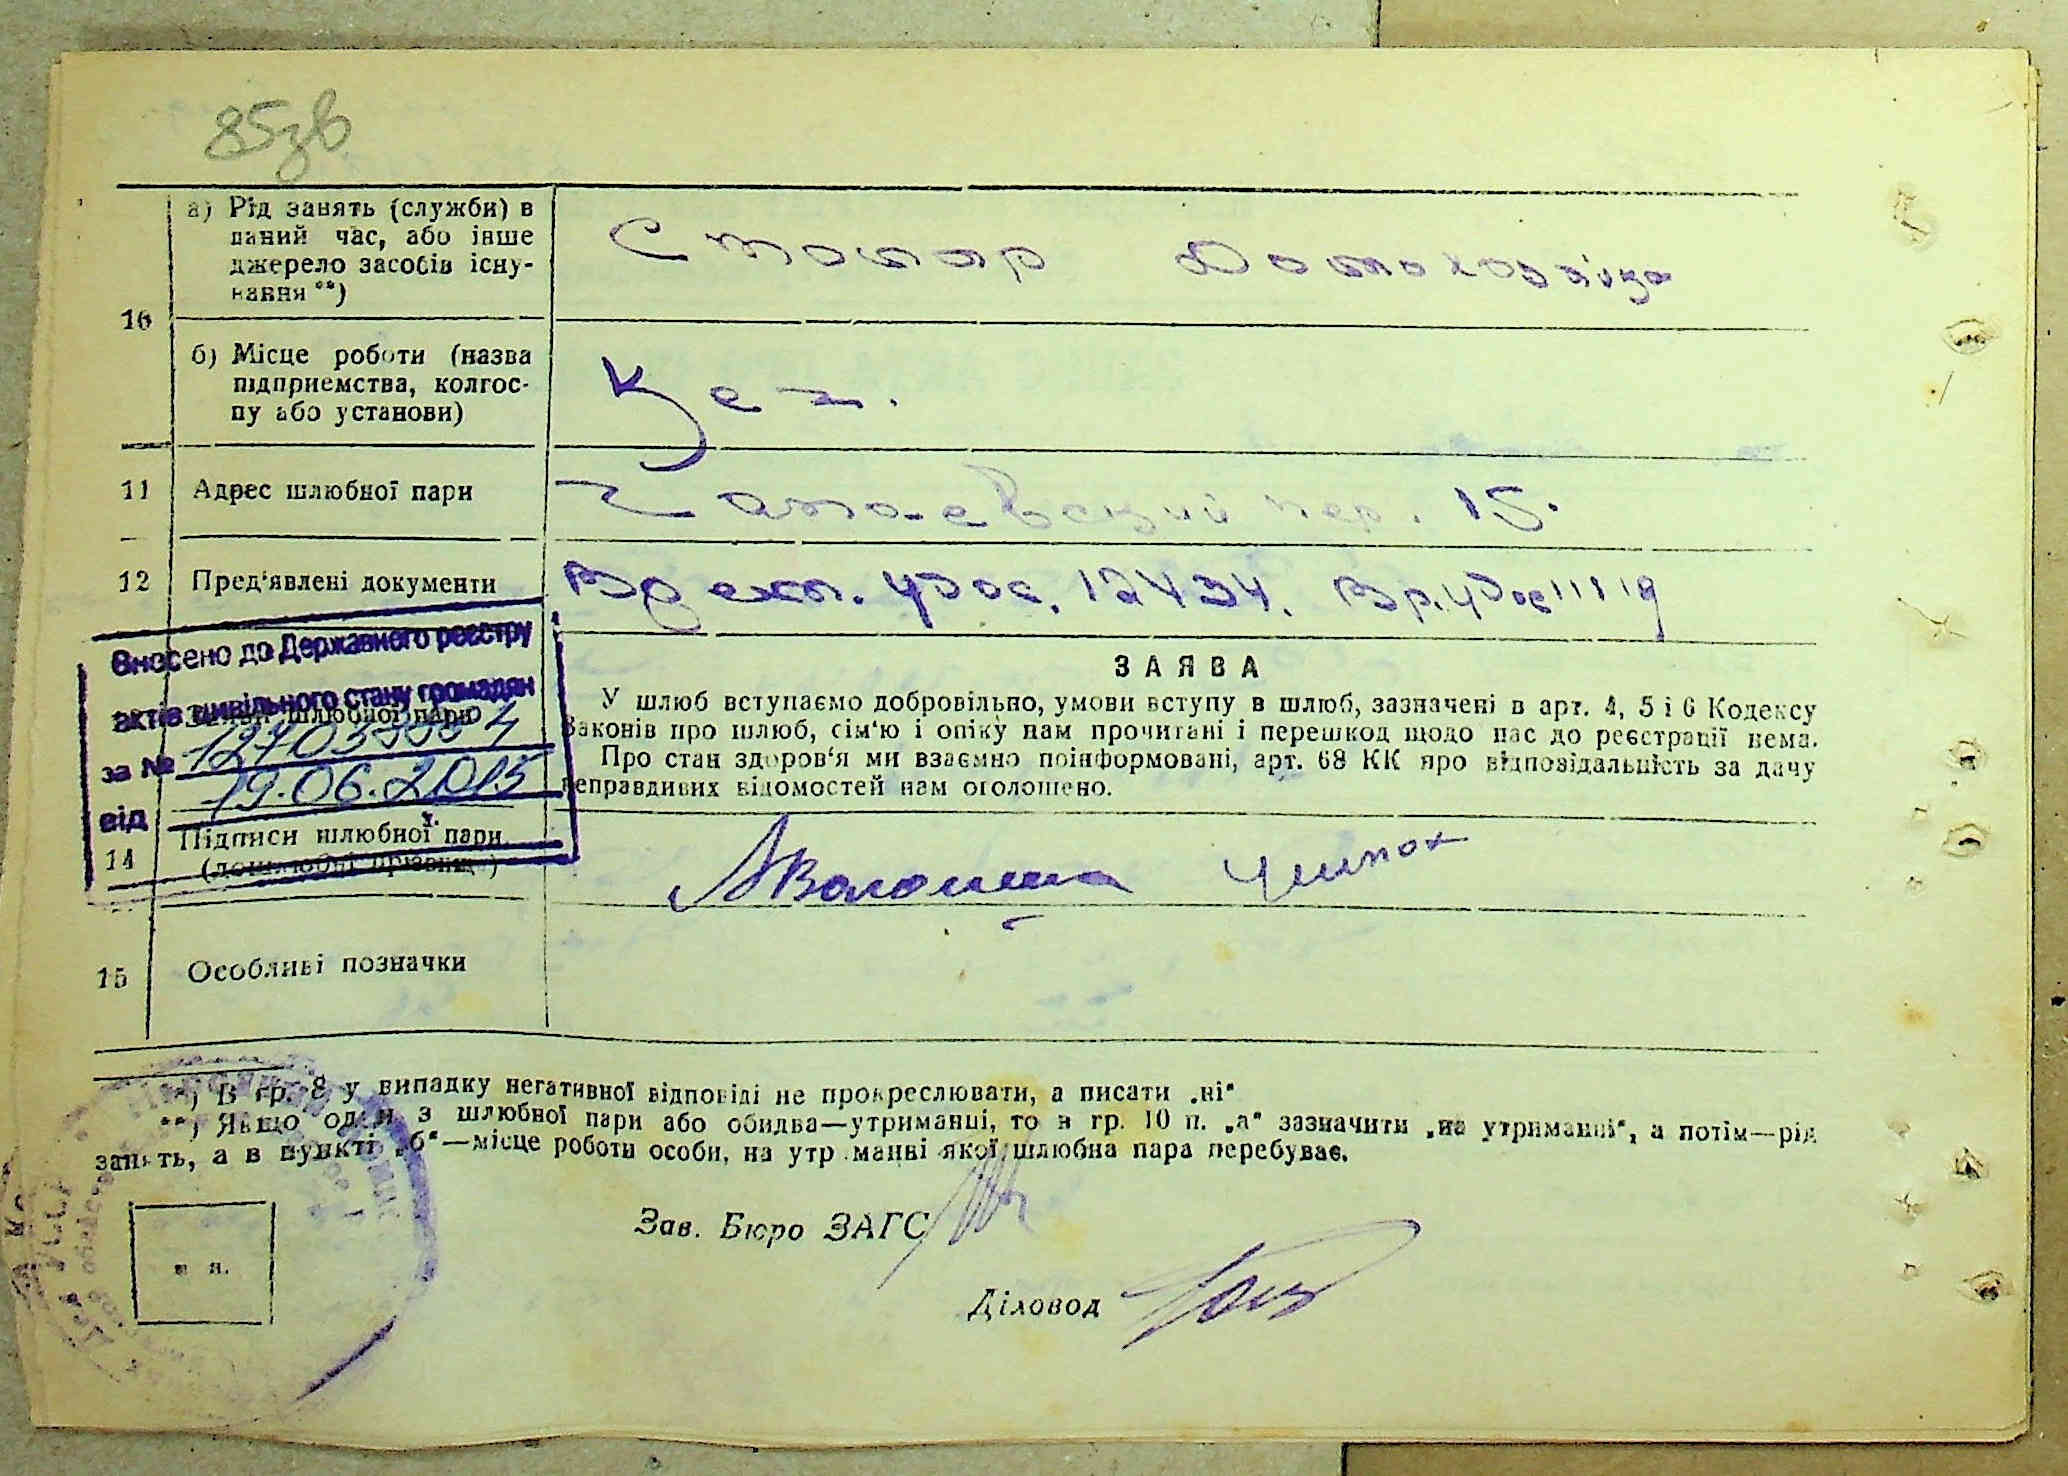 85зв
а) Рід занять (служби) в
даний час, або інше
джерело засобів існу-
вання **)
Столяр Домохозяйка
10
б) Місце роботи (назва
підприємства, колгос-
пу або установи)
Цех.
11 Адрес шлюбної пари
Чапаевский пер. 15.
12 Пред'явлені документи
Времен. удос. 12434. Вр. удос 11119
Внесено до Державного реєстру
актів цивільного стану громадян
за №
від 19.06.2015
шлюбної пари
ЗАЯВА
У шлюб вступаємо добровільно, умови вступу в шлюб, зазначені в арт. 4, 5 і 6 Кодексу
Законів про шлюб, сім'ю і опіку нам прочитані і перешкод щодо нас до реєстрації нема.
Про стан здоров'я ми взаємно поінформовані, арт. 68 КК про відповідальність за дачу
неправдивих відомостей нам оголошено.
14 Підписи шлюбної пари
(дошлюбні прізвища)
Волошина
15 Особливі позначки
*) В гр. 8 у випадку негативної відповіді не прокреслювати, а писати „ні“
**) Якщо один з шлюбної пари або обидва—утриманці, то в гр. 10 п. „а“ зазначити „на утриманні“, а потім—рід
занять, а в пункті „б“—місце роботи особи, на утриманні якої шлюбна пара перебуває.
Зав. Бюро ЗАГС
Діловод